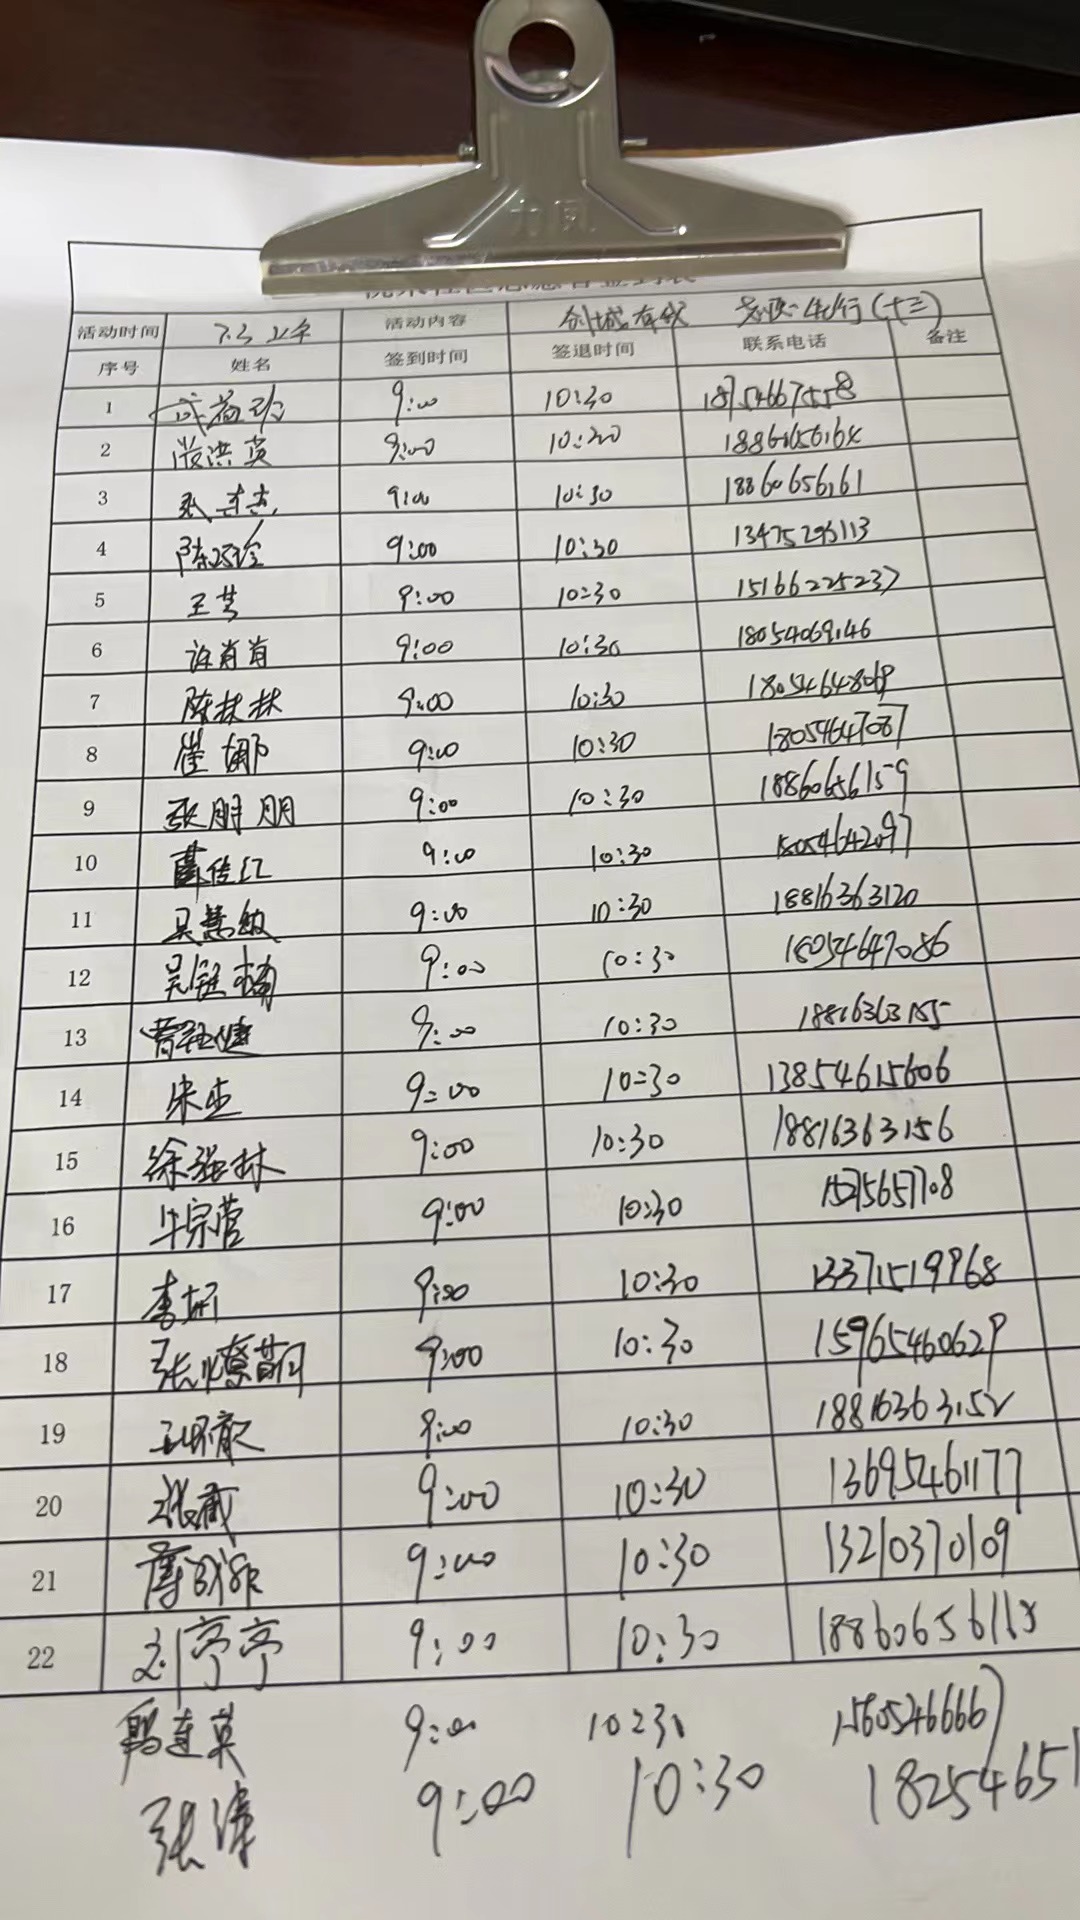 力风
活动时间 7.3 上午 活动内容 创城有我 先行(十三)
序号 姓名 签到时间 签退时间 联系电话 备注
1 9:00 10:30 18754667558
2 洪英 9:00 10:30
3 9:00 10:30 18860656161
4 陈巧玲 9:00 10:30 13475293113
5 王芸 9:00 10:30 15166225237
6 许肖肖 9:00 10:30 18054069146
7 陈林林 9:00 10:30 18054648069
8 崔娜 9:00 10:30 18054647087
9 张朋朋 9:00 10:30 18860656159
10 9:00 10:30 18054642097
11 吴慧敏 9:00 10:30 18816363120
12 9:00 10:30 18054647086
13 9:00 10:30 18816363155
14 9:00 10:30 13854615606
15 徐强林 9:00 10:30 18816363156
16 牛宗营 9:00 10:30 15275657708
17 李妍 9:00 10:30 13371519968
18 张 9:00 10:30 15965460629
19 9:00 10:30 18816363152
20 9:00 10:30 13695461177
21 9:00 10:30 13210370109
22 刘亭亭 9:00 10:30
连英 9:00 10:30 15605466667
张 9:00 10:30 18254651